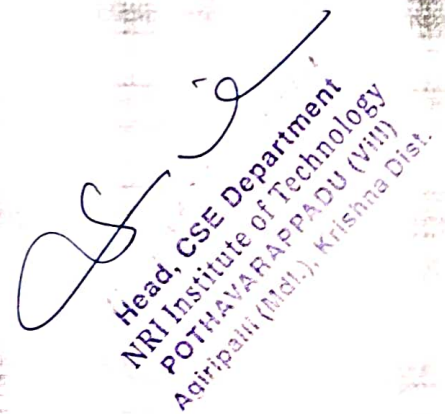 Head, CSE Department
NRI Institute of Technology
POTHAVARAPPADU (Vill)
Agiripalli (Mdl.), Krishna Dist.